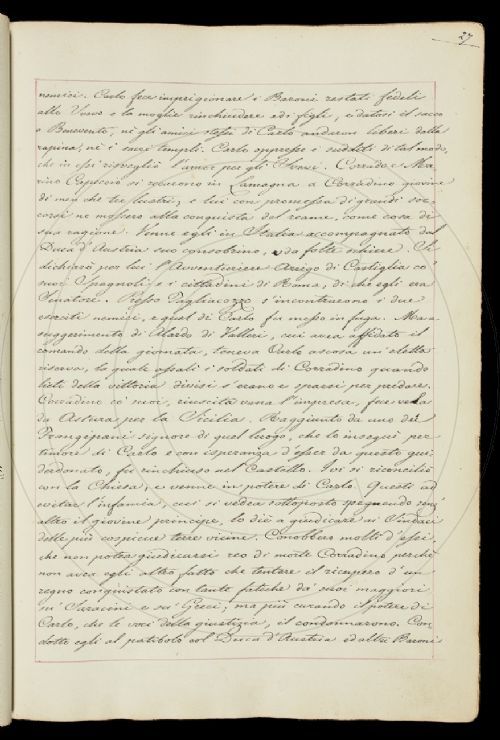 27
nemici. Carlo fece imprigionare i Baroni restati fedeli
allo Svevo e la moglie rinchiudere ed i figli, e datosi il sacco
a Benevento, nè gli amici stessi di Carlo andaron liberi dalla
rapina, nè i sacri templi. Carlo oppresse i sudditi di tal modo,
che in essi risvegliò l'amor per gli Svevi. Corrado e Ma
rino Capecio si recarono in Lamagna a Corradino giovine
di men che tre lustri, e lui con promessa di grandi soc-
corsi ne mossero alla conquista del reame, come cosa di
sua ragione. Venne egli in Italia accompagnato dal
Duca d'Austria suo consobrino, e da folte schiere. Si
dichiarò per lui l'Avventuriere Arrigo di Castiglia co'
suoi Spagnoli e i cittadini di Roma, di che egli era
Senatore. Presso Tagliacozzo s'incontrarono i due
eserciti nemici, e quel di Carlo fu messo in fuga. Ma a
suggerimento di Alardo di Valleri, cui avea affidato il
comando della giornata, teneva Carlo ascosa un'eletta
riserva, la quale assalì i soldati di Corradino quando
lieti della vittoria divisi s'erano e sparsi per predare.
Corradino co' suoi, riuscita vana l'impresa, fece vela
da Astura per la Sicilia. Raggiunto da uno dei
Frangipani signore di quel luogo, che lo inseguì per
timore di Carlo e con isperanza d'esser da questo gui
derdonato, fu rinchiuso nel Castello. Ivi si riconciliò
con la Chiesa, e venne in potere di Carlo. Questi ad
evitar l'infamia, cui si vedea sottoposto spegnendo senz'
altro il giovine principe, lo diè a giudicare ai Sindaci
delle più cospicue terre vicine. Conobbero molti d'essi,
che non potea giudicarsi reo di morte Corradino perchè
non avea egli altro fatto che tentare il ricupero d'un
regno conquistato con tante fatiche da' suoi maggiori
su' Saracini e su' Greci; ma più curando il potere di
Carlo, che le voci della giustizia, il condonnarono. Con
dotto egli al patibolo col Duca d'Austria ed altri Baroni